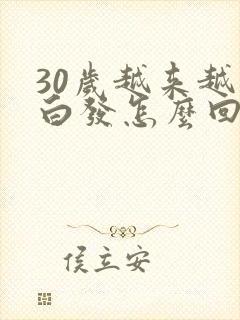 30歲越来越
白發怎麼回
侯立安